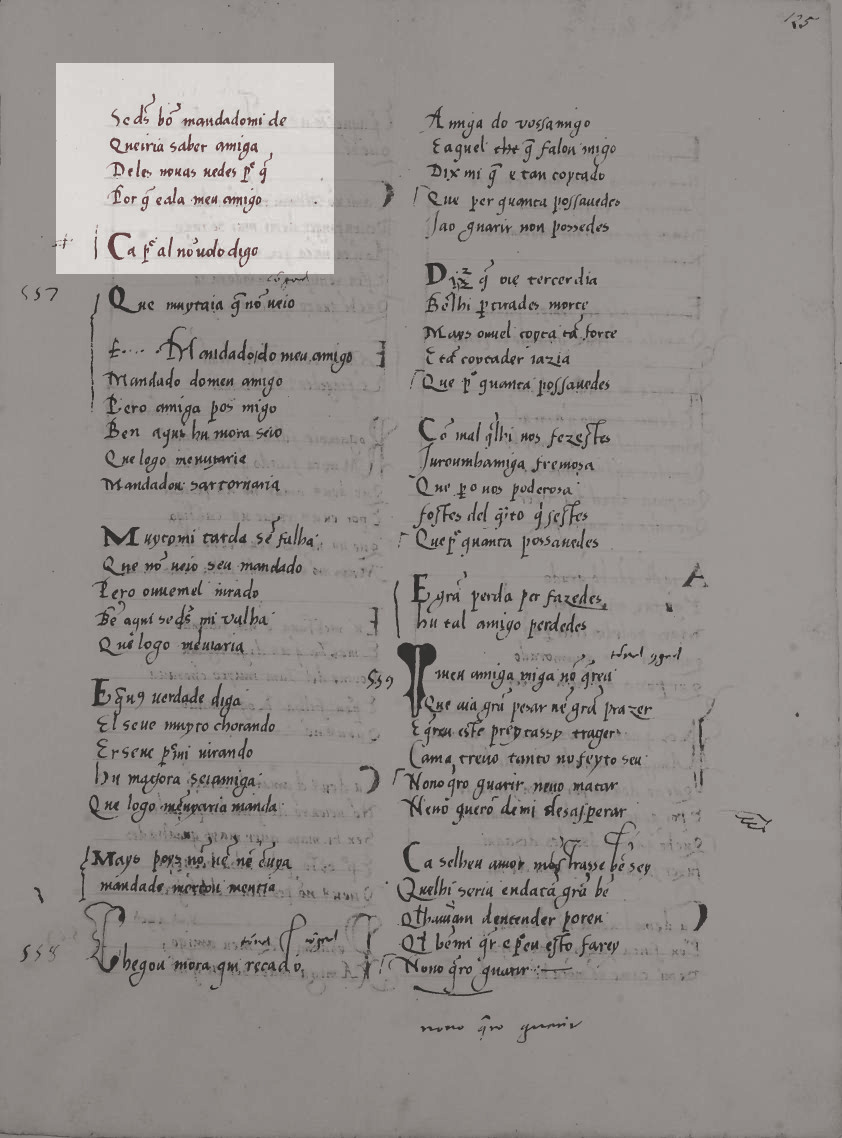 125
Se ds̄ bō mandadomi de
Queiria saber amiga
Deles nouas uedes pº q̄
Por q̄ e ala meu amigo
Ca pº al nō uolo digo
557
Que muytaia q̄ nō ueio
Mandado do meu amigo
Mandado do meu amigo
Pero amiga pos migo
Ben aqui hu mora seio
Que logo menuyaria
Mandadou sartornaria
Muytomi tarda sē falha
Que nō ueio seu mandado
Pero ouuemel iurado
Bē aqui se ds̄ mi ualha
Que logo menuiaria
E q̄ nꝯ uerdade diga
El seue muyto chorando
Er seue p mi iurando
hu mayora seiamiga
Que logo menuyaria manda
Mays poys nō uē nē ēuya
mandade mentia
558
Chegou mora qui recado
Amiga do vossamigo
Eaquel q̄ falou migo
Dix mi q̄ e tan coytado
Que per quanta possauedes
Jao guarir non possedes
Diz q̄ oie tercer dia
Bē lhi partirades morte
Mays ouuel coyta tā forte
E tā coytader iazia
Que pº quanta possauedes
Cō mal q̄lhi uos fezestes
Juroumhamiga fremosa
Que pº uos poderosa
fostes del q̄ito q̄sestes
Que pº quanta possauedes
E grā perda per fazedes
hu tal amigo perdedes
559
meu amiga miga nō q̄reu
Que aia grā pesar nē grā prazer
E q̄reu este preytassy trager
Cama treuo tanto no feyto seu
Nono q̄ro guarir neno matar
Neno quero de mi desasperar
Ca selheu amor mostrasse bē sey
Quelhi seria endatā grā bē
Qlhauiam dentender poren
Ql bēmi q̄r e pº eu esto farey
Nono q̄ro guarir
nono q̄ro guarir